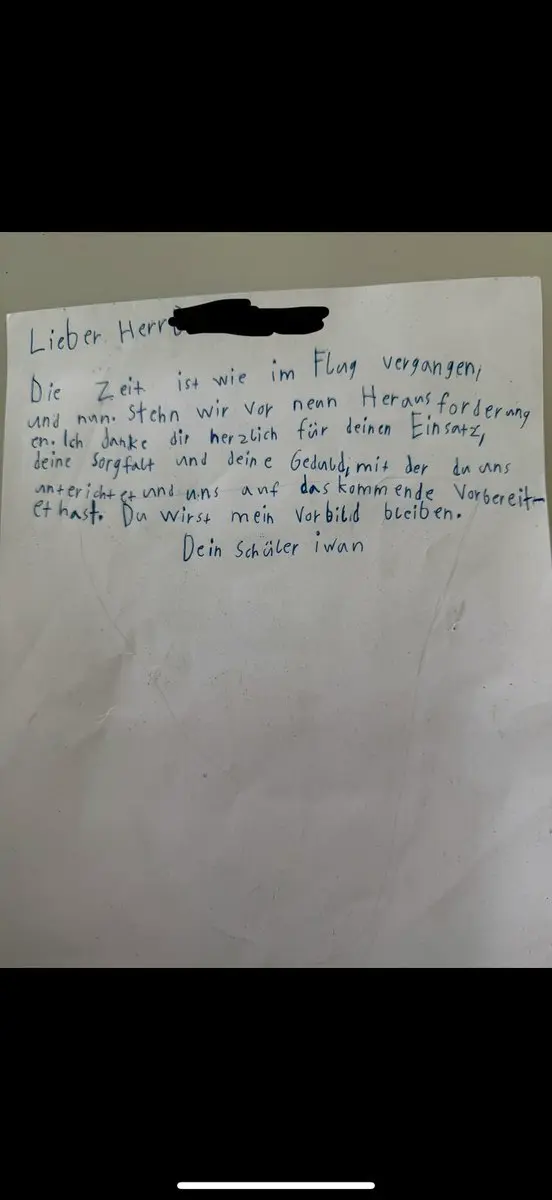 Lieber Herr
Die Zeit ist wie im Flug vergangen,
und nun. Stehn wir vor neun Heraus forderung
en. Ich danke dir herzlich für deinen Einsatz,
deine Sorgfalt und deine Geduld, mit der du uns
unterichtet und uns auf das kommende Vorbereit-
et hast. Du wirst mein Vorbild bleiben.
Dein Schüler iwan